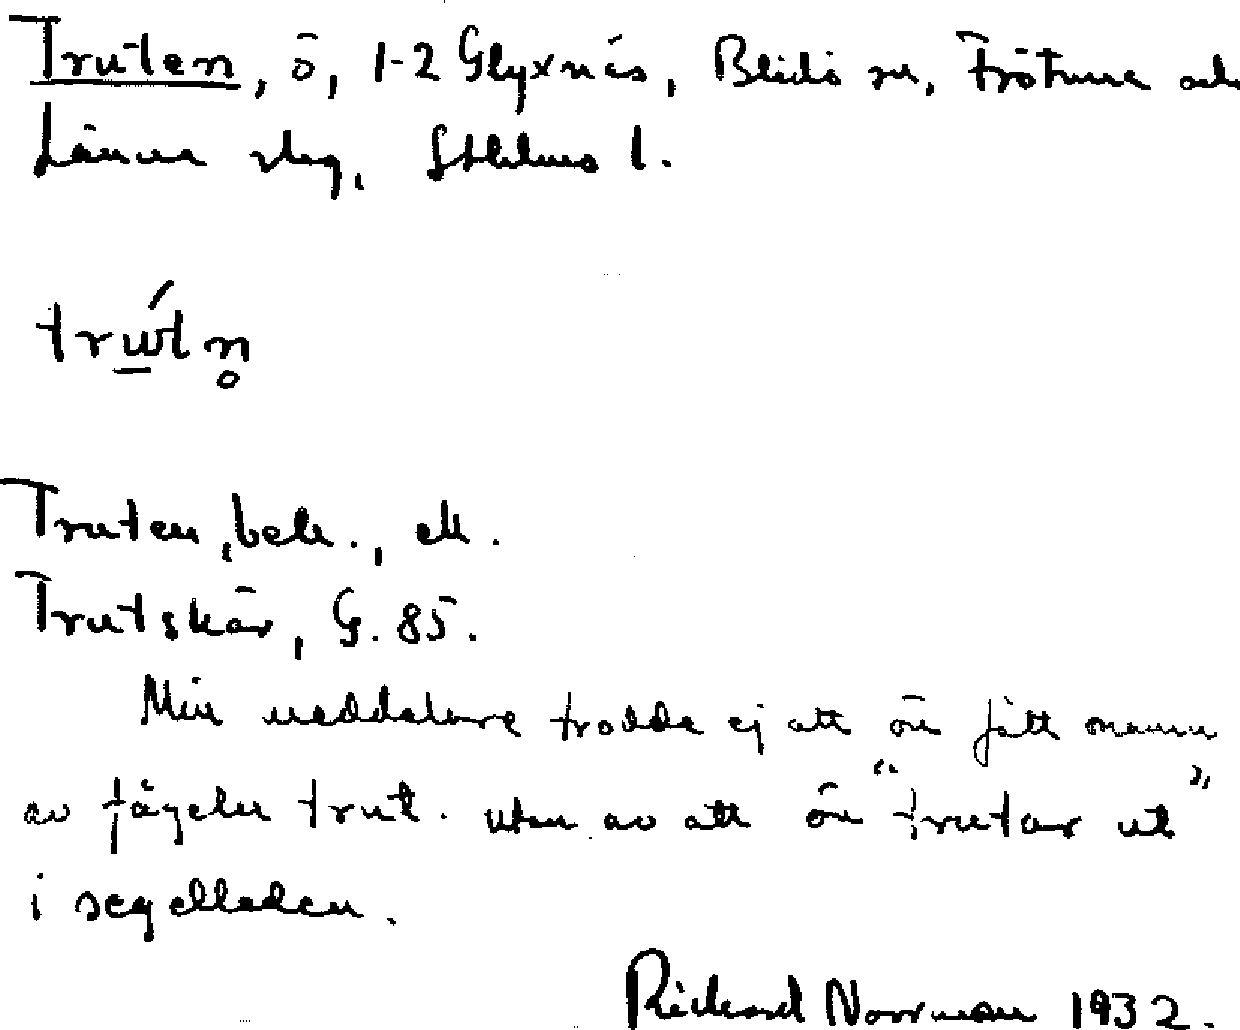 Truten, ö, 1-2 Glyxnäs, Blidö sn, Frötuna och
Länna slg, Sthlms l.
trẃtn̥
Truten, bek., ek.
Trutskär, G. 85.
Min meddelare trodde ej att ön fått namn
av fågeln trut. utan av att ön "trutar ut"
i segelleden.
Richard Norrman 1932.